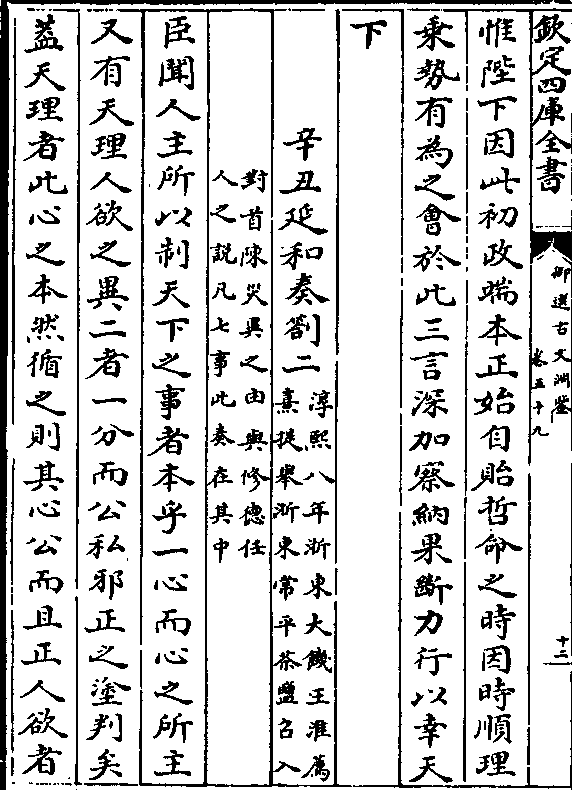 欽定四庫全書
御選古文淵鑒
卷五十九
十二
惟陛下因此初政端本正始自貽哲命之時因時順理
乘勢有為之會於此三言深加察納果斷力行以幸天
下
辛丑延和奏劄二
淳熙八年浙東大饑王淮薦
熹提舉浙東常平茶鹽召入
對首陳災異之由與修德任
人之説凡七事此奏在其中
臣聞人主所以制天下之事者本乎一心而心之所主
又有天理人欲之異二者一分而公私邪正之塗判矣
葢天理者此心之本然循之則其心公而且正人欲者